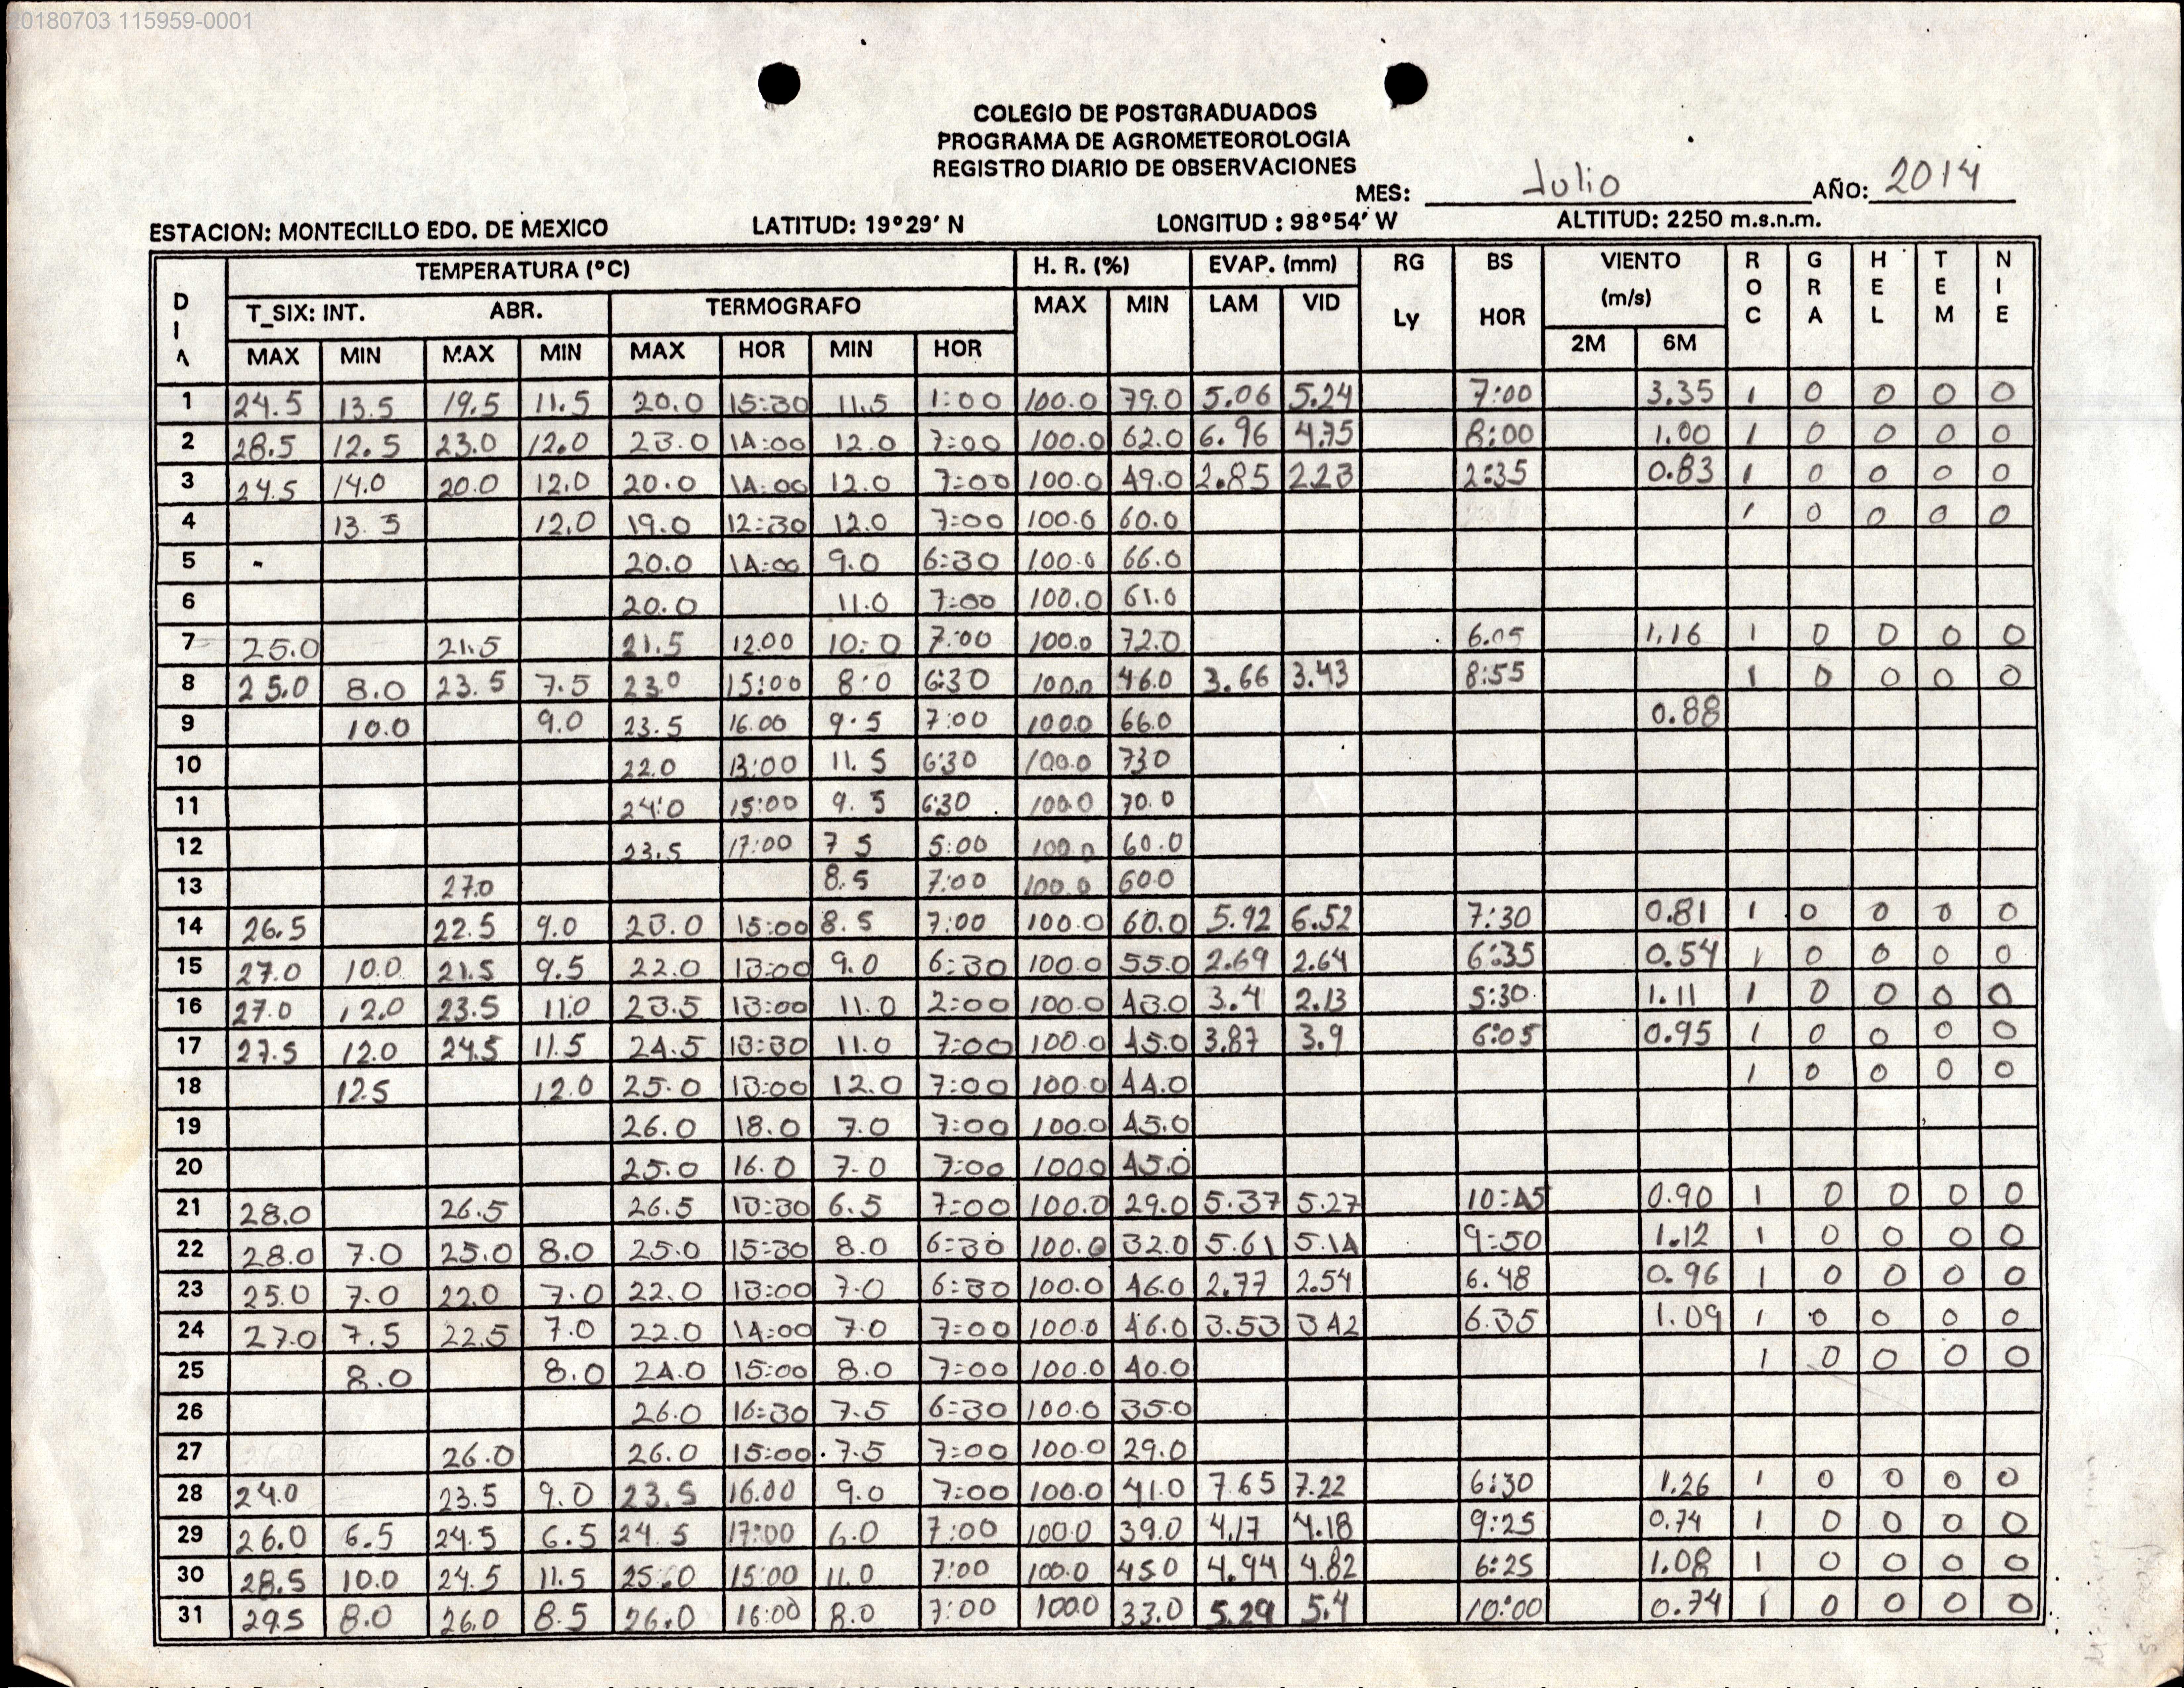 20180703 115959-0001
COLEGIO DE POSTGRADUADOS
PROGRAMA DE AGROMETEOROLOGIA
REGISTRO DIARIO DE OBSERVACIONES
MES: Julio AÑO: 2014
ESTACION: MONTECILLO EDO. DE MEXICO LATITUD: 19°29' N LONGITUD : 98°54' W ALTITUD: 2250 m.s.n.m.
DIA TEMPERATURA (°C) H. R. (%) EVAP. (mm) RG BS VIENTO ROC GRA HEL TEM NIE
T_SIX: INT. ABR. TERMOGRAFO MAX MIN LAM VID Ly HOR (m/s)
MAX MIN MAX MIN MAX HOR MIN HOR 2M 6M
1 24.5 13.5 19.5 11.5 20.0 15:30 11.5 1:00 100.0 79.0 5.06 5.24 7:00 3.35 1 0 0 0 0
2 28.5 12.5 23.0 12.0 23.0 14:00 12.0 7:00 100.0 62.0 6.96 4.75 8:00 1.00 1 0 0 0 0
3 24.5 14.0 20.0 12.0 20.0 14:00 12.0 7:00 100.0 49.0 2.85 2.23 2:35 0.83 1 0 0 0 0
4 13.5 12.0 19.0 12:30 12.0 7:00 100.0 60.0 1 0 0 0 0
5 - 20.0 14:00 9.0 6:30 100.0 66.0
6 20.0 11.0 7:00 100.0 61.0
7 25.0 21.5 21.5 12.00 10:0 7:00 100.0 72.0 6.05 1.16 1 0 0 0 0
8 25.0 8.0 23.5 7.5 23.0 15:00 8.0 6:30 100.0 46.0 3.66 3.43 8:55 1 0 0 0 0
9 10.0 9.0 23.5 16.00 9.5 7:00 100.0 66.0 0.88
10 22.0 13:00 11.5 6:30 100.0 73.0
11 24.0 15:00 9.5 6:30 100.0 70.0
12 23.5 17:00 7 5 5:00 100.0 60.0
13 27.0 8.5 7:00 100.0 60.0
14 26.5 22.5 9.0 23.0 15:00 8.5 7:00 100.0 60.0 5.92 6.52 7:30 0.81 1 0 0 0 0
15 27.0 10.0 21.5 9.5 22.0 13:00 9.0 6:30 100.0 55.0 2.69 2.64 6:35 0.54 1 0 0 0 0
16 27.0 12.0 23.5 11.0 23.5 13:00 11.0 2:00 100.0 43.0 3.4 2.13 5:30 1.11 1 0 0 0 0
17 27.5 12.0 24.5 11.5 24.5 13:30 11.0 7:00 100.0 45.0 3.87 3.9 6:05 0.95 1 0 0 0 0
18 12.5 12.0 25.0 13:00 12.0 7:00 100.0 44.0 1 0 0 0 0
19 26.0 18.0 7.0 7:00 100.0 45.0
20 25.0 16.0 7.0 7:00 100.0 45.0
21 28.0 26.5 26.5 13:30 6.5 7:00 100.0 29.0 5.37 5.27 10:45 0.90 1 0 0 0 0
22 28.0 7.0 25.0 8.0 25.0 15:30 8.0 6:30 100.0 32.0 5.61 5.14 9:50 1.12 1 0 0 0 0
23 25.0 7.0 22.0 7.0 22.0 13:00 7.0 6:30 100.0 46.0 2.77 2.54 6.48 0.96 1 0 0 0 0
24 27.0 7.5 22.5 7.0 22.0 14:00 7.0 7:00 100.0 46.0 3.53 3.42 6.35 1.09 1 0 0 0 0
25 8.0 8.0 24.0 15:00 8.0 7:00 100.0 40.0 1 0 0 0 0
26 26.0 16:30 7.5 6:30 100.0 35.0
27 26.0 26.0 15:00 7.5 7:00 100.0 29.0
28 24.0 23.5 9.0 23.5 16.00 9.0 7:00 100.0 41.0 7.65 7.22 6:30 1.26 1 0 0 0 0
29 26.0 6.5 24.5 6.5 24.5 17:00 6.0 7:00 100.0 39.0 4.17 4.18 9:25 0.74 1 0 0 0 0
30 28.5 10.0 24.5 11.5 25.0 15:00 11.0 7:00 100.0 45.0 4.94 4.82 6:25 1.08 1 0 0 0 0
31 29.5 8.0 26.0 8.5 26.0 16:00 8.0 7:00 100.0 33.0 5.29 5.4 10:00 0.74 1 0 0 0 0